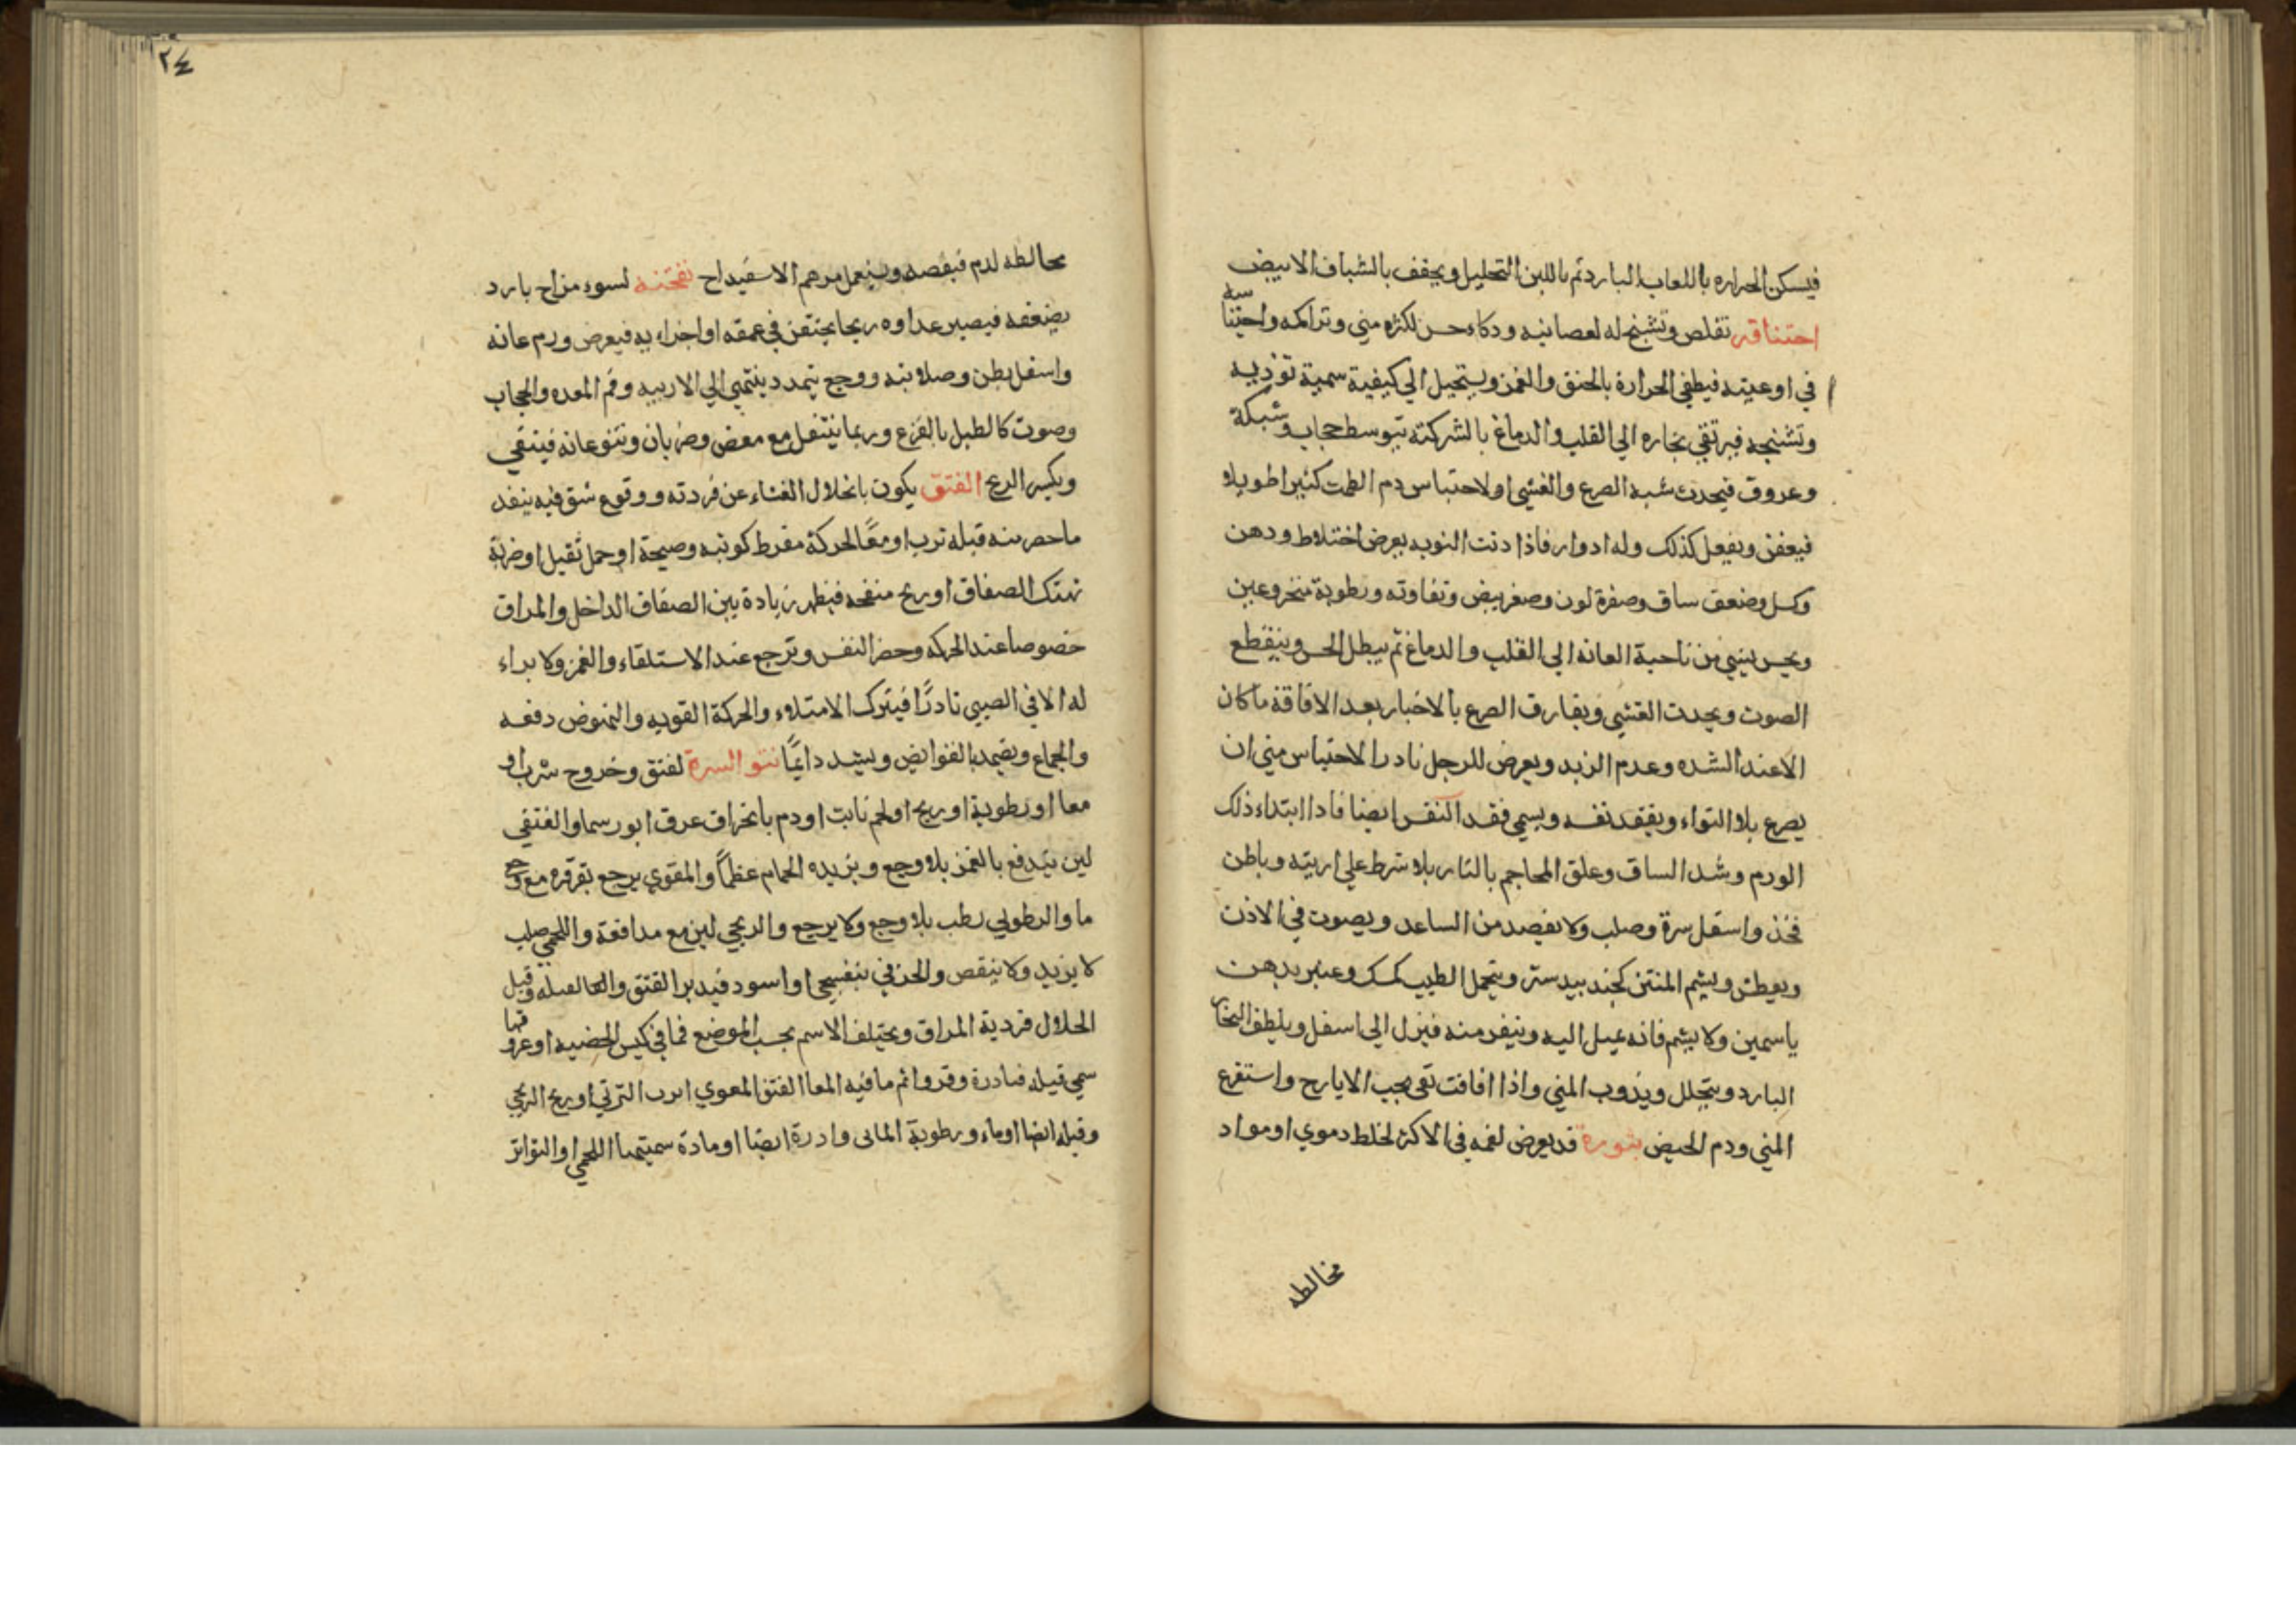 فيسكن الحراره باللعاب البارد ثم باللبن التحليل ويجفف بالشياف الابيض
احتناقه تقلص وتشنج له لعصابنيه ودكاء حس لكثره مني وتراكمه واحتبا سه
في اوعيته فيطفي الحرارة بالخنق والغمز ويستحيل الي كيفية سمية توذيه
وتشنجه فيرتقي بخاره الي القلب والدماغ بالشركة بتوسط حجاب وشبكة
وعروق فيحدث شبه الصرع والغشي اولاحتباس دم الطمث كثيرا طويلا
فيعفن ويفعل كذلك وله ادوار فاذا دنت النوبه يعرض اختلاط ودهن
وكسل وضعف ساق وصفرة لون وصغر نبض وتفاوته ورطوبة منخر وعين
ويحس بشي من ناحية العانه الي القلب والدماغ ثم يبطل الحس وينقطع
الصوت ويحدث الغشي ويفارق الصرع بالاخبار بعد الافاقة ما كان
الا عند الشده وعدم الزبد ويعرض للرجل نادرا لاحتباس مني ان
يصرع بلا التواء ويفقد نفسه ويسمي فقد النفس ايضا فاذا ابتداء ذلك
الورم وشد الساق وعلق المحاجم بالنار بلا شرط علي اربيته وباطن
فخذ واسفل سرة وصلب ولا يفصد من الساعد ويصوت في الاذن
ويعطش ويشم المنتن كجند بيدستر ويتحمل الطيب كمسك وعنبر بدهن
ياسمين ولا يشم فانه يميل اليه وينفر منه فينزل الي اسفل ويلطف البخار
البارد ويتحلل ويذوب المني واذا افاقت تقي بحب الايارج واستفرغ
المني ودم الحيض بثوره قد يعرض لفمه في الاكثر لخلط دموي او مواد
مخالطه
٢٤
مخالطه لدم فيفصد ويستعمل مرهم الاسفيداج نفختنه لسوء مزاج بارد
يضعفه فيصير غداوه ريحا يحتقن في عمقه او اجزاء به فيعرض ورم عانه
واسفل بطن وصلابته ووجع يتمدد ينتهي الي الاربيه وفم المعده والحجاب
وصوت كالطبل بالقرع وربما ينتقل مع مغص وضربان ونتو عانه فينقي
ويكسر الريح الفتق يكون بانحلال الغشاء عن فردته ووقوع شق فيه ينفذ
ما حصر منه قبله ترب او معًا لحركة مفرط كوثبه وصيحة او حمل ثقيل او ضربة
تهتك الصفاق او ريح منفخه فيظهر زيادة بين الصفاق الداخل والمراق
خصوصا عند الحركه وحصر النفس وترجع عند الاستلقاء والغمز ولا براء
له الا في الصبي نادرًا فيترك الامتلاء والحركة القويه والنهوض دفعه
والجماع ويضمد بالقوابض ويشد دايمًا نتو السرة لفتق وخروج ثرب او
معا او رطوبة او ريح او لحم نابت او دم بانخراق عرق ابورسما والفتقي
لين يندفع بالغمز بلا وجع ويزيده الحمام عظمًا والمقوي يرجع بقرقره مع وجع
ما والرطوبي رطب بلا وجع ولا يرجع والريحي لين مع مدافعة واللحمي صلب
لا يزيد ولا ينقص والخرقي بنفسجي او اسود فيدبر الفتق والقيله وقيل
انحلال فردية المراق ويختلف الاسم بحسب الموضع فما في كيس الخصيه او عروقها
سمي قيله فبادرة وقروا ثم ما فيه المعا الفتق المعوي الثرب الثربي او ريح الريحي
وقيله ايضا او ماء ورطوبة المائي وادرة ايضا او مادة سميتهما اللحمي والتواتر